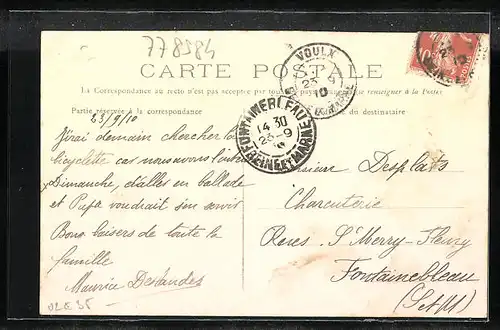 778984
CARTE POSTALE
La Correspondance au recto n'est pas acceptée par tous pays étrangers. Se renseigner à la Poste
Partie réservée à la correspondance
du destinataire
VOULX
23 -9
10
FONTAINEBLEAU
14 30
23-9
SEINE ET MARNE
23/9/10
J'irai demain chercher la
bicyclette car nous avons l'
Dimanche, d'aller en ballade
et Papa voudrait s'en servir
Bons baisers de toute la
famille
Maurice Deslandes
Monsieur Desplats
Charcuterie
Rues St Merry-Fleury
Fontainebleau
(S et M)